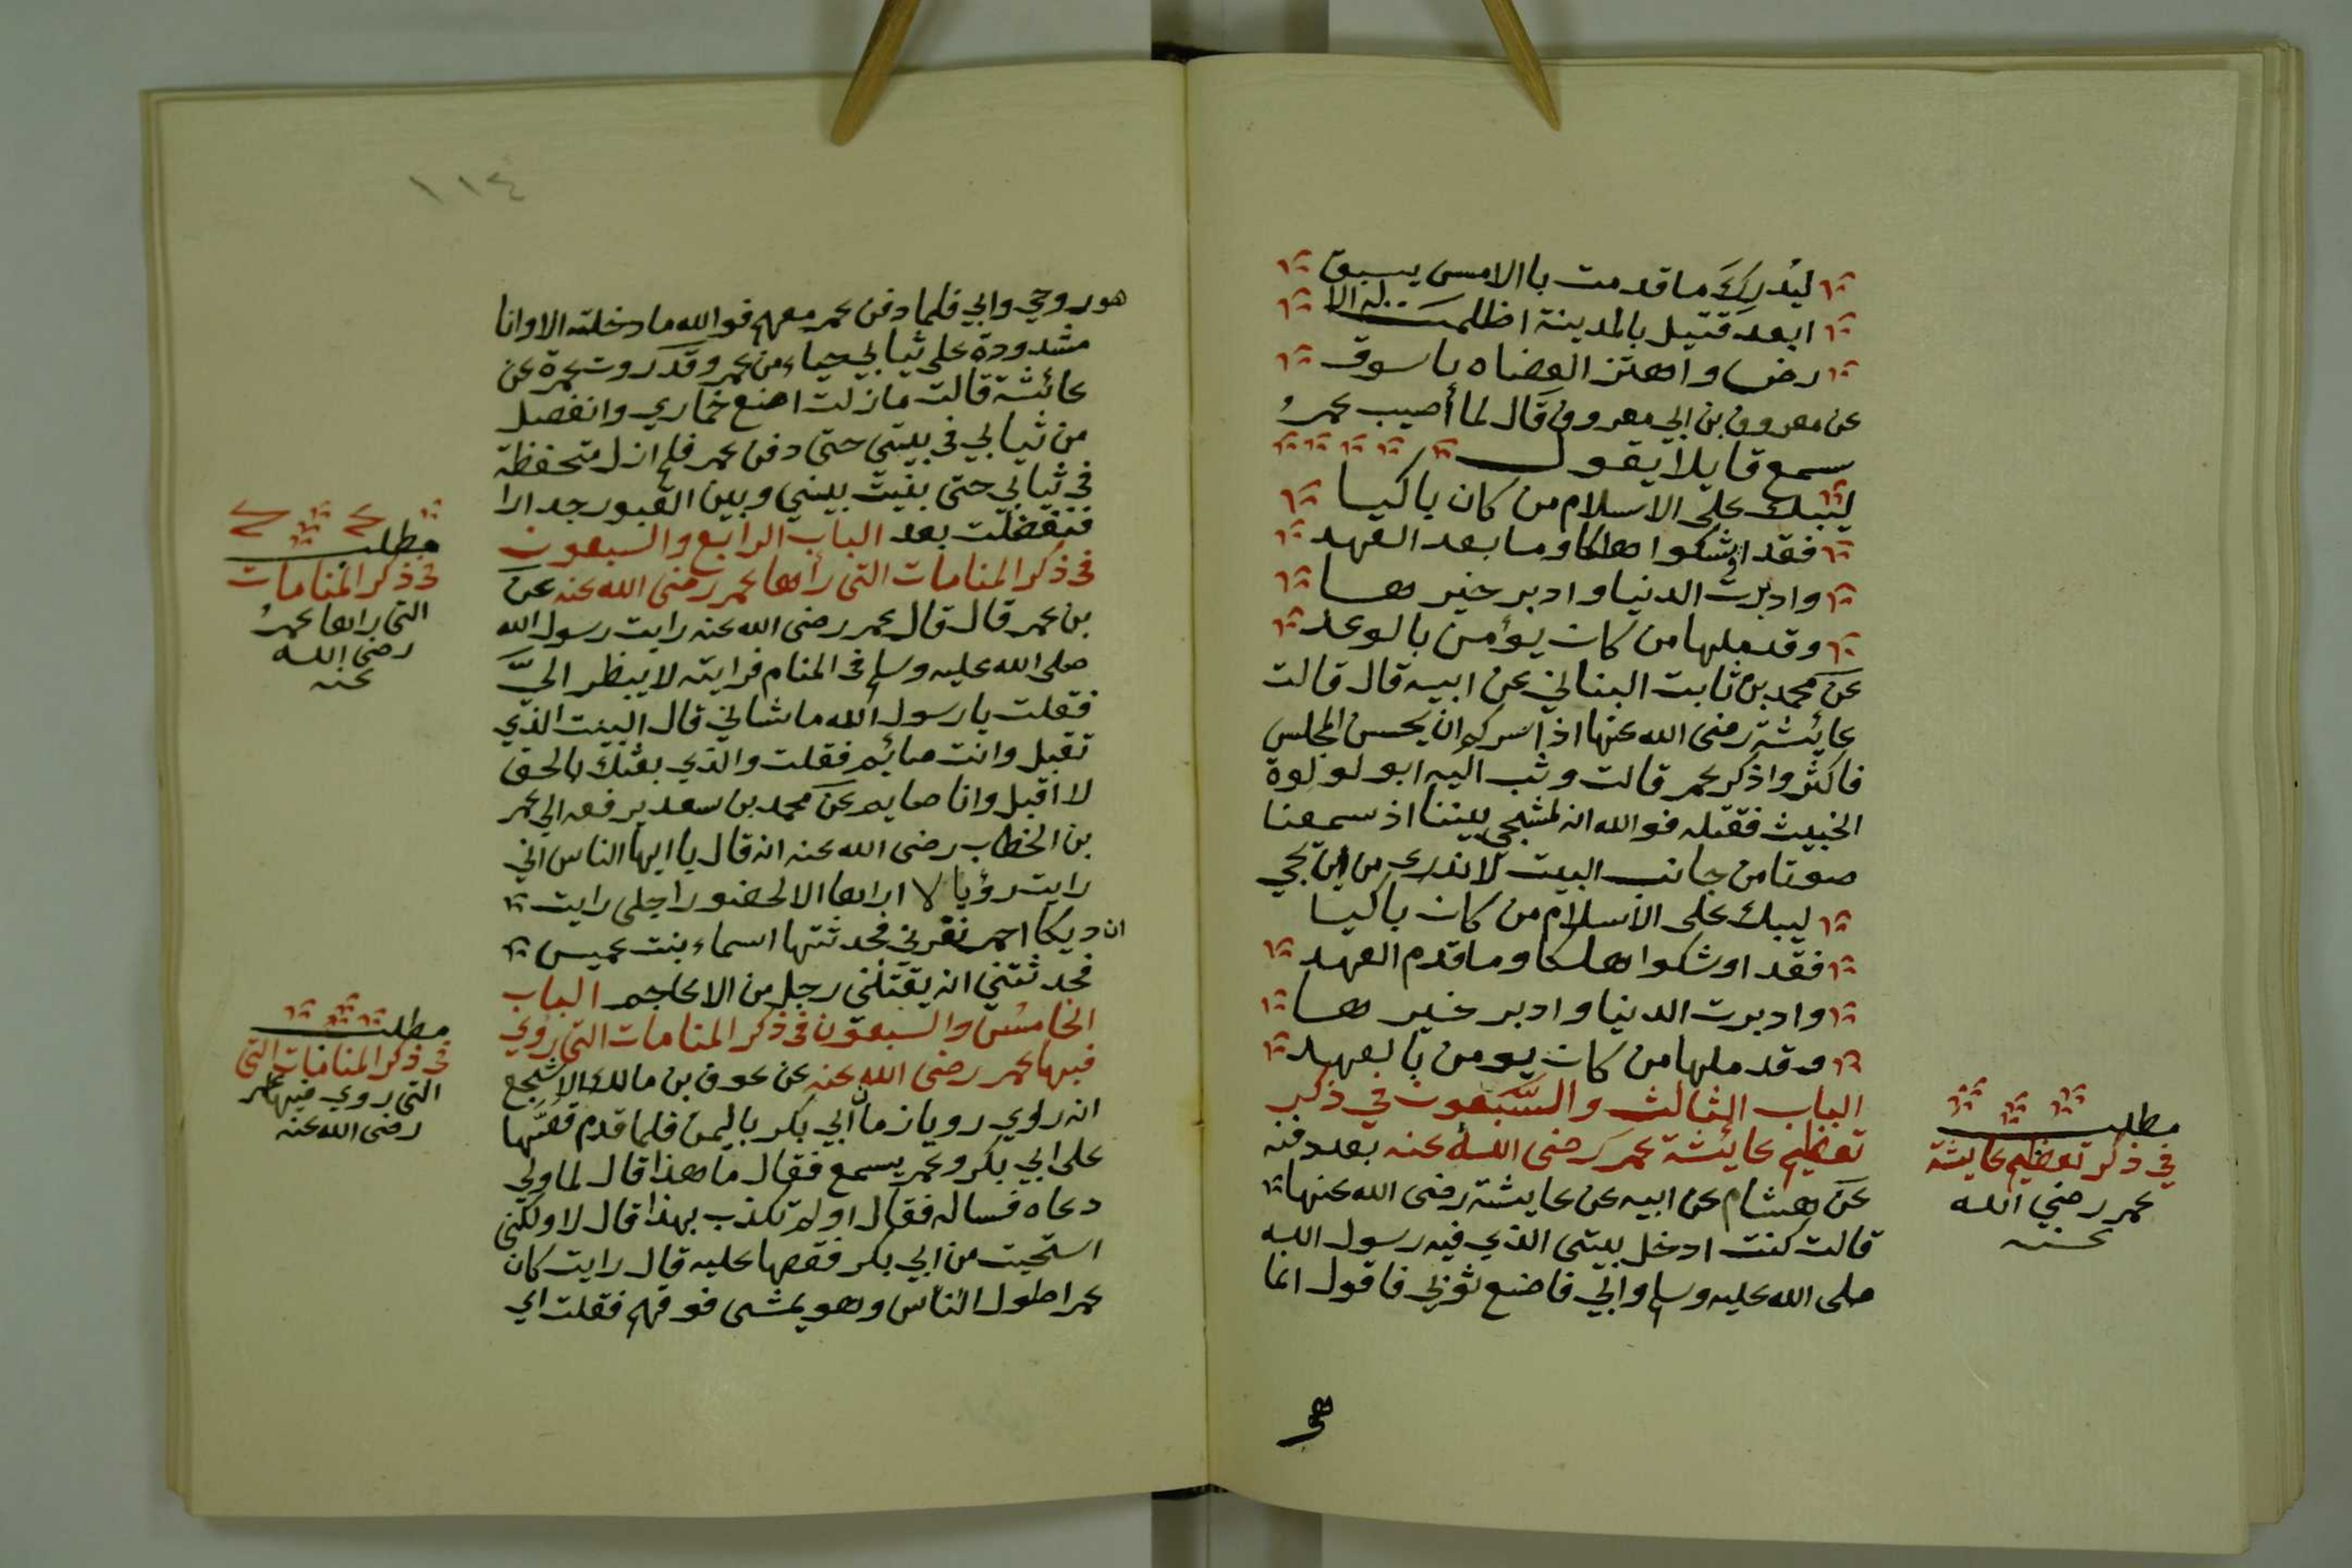 ليُدرِكَكَ ما قدمت باالامس يسبق
ابعد قتيل بالمدينة اظلمت له الا
رض واهتز العضاه باسوق
عن معروف بن ابي معروف قال لما أصيب عمرُ
سمع قايلا يقول
ليبك على الاسلام من كان باكيا
فقد اوشكوا هلكا وما بعد العهد
وادبرت الدنيا وادبر خيرها
وقد ملها من كان يؤمن بالوعد
عن محمد بن ثابت البناني عن ابيه قال قالت
عايشة رضى الله عنها اذا سركم ان يحسن المجلس
فاكثروا ذكر عمر قالت وثب اليه ابو لولوة
الخبيث فقتله فوالله انه لمسجى بيننا اذ سمعنا
صوتا من جانب البيت لا ندري من اين يجي
ليبك على الاسلام من كان باكيا
فقد اوشكوا هلكا وما قدم العهد
وادبرت الدنيا وادبر خيرها
وقد ملها من كان يومن بالعهد
الباب الثالث والسَّبعون في ذكر
تعظيم عايشة عمر رضى الله عنه بعد دفنه
عن هشام عن ابيه عن عايشة رضى الله عنها
قالت كنت ادخل بيتى الذي فيه رسول الله
صلى الله عليه وسلم وابي فاضع ثوبي فاقول انما
هو
مطلب
في ذكر تعظيم عايشة
عمر رضي الله
عنه
١١٤
هو زوجي وابي فلما دفن عمر معهم فوالله ما دخلته الا وانا
مشدودة على ثيابي حياء من عمر وقد روت عمرة عن
عائشة قالت ما زلت اضع خماري وانفصل
من ثيابي في بيتى حتى دفن عمر فلم ازل متحفظة
في ثيابي حتى بنيت بيني وبين القبور جدارا
فتفضلت بعد الباب الرابع والسبعون
في ذكر المنامات التى رأها عمر رضى الله عنه عن
بن عمر قال قال عمر رضى الله عنه رايت رسول الله
صلى الله عليه وسلم في المنام فرايته لا ينظر اليَّ
فقلت يا رسول الله ما شاني قال البيت الذي
تقبل وانت صائم فقلت والذي بعثك بالحق
لا اقبل وانا صايم عن محمد بن سعد يرفعه الي عمر
بن الخطاب رضى الله عنه انه قال يا ايها الناس اني
رايت رؤيا لا اراها الا لحضور اجلى رايت
ان ديكا احمر نقرني فحدثتها اسماء بنت عميس
فحدثتني انه يقتلني رجل من الاعاجم الباب
الخامس والسبعون في ذكر المنامات التى روي
فيها عمر رضى الله عنه عن عوف بن مالك الاشجع
انه راوي رويا زمان ابي بكر باليمن فلما قدم قصَّها
على ابي بكر وعمر يسمع فقال ما هذا قال لما ولي
دعاه فساله فقال اولم تكذب بهذا قال لا ولكنى
استحيت من ابي بكر فقصها عليه قال رايت كان
عمر اطول الناس وهو يمشى فوقهم فقلت اي
مطلب
في ذكر المنامات
التى راها عمرُ
رضي الله
عنه
مطلب
في ذكر المنامات التى
التى روي فيها عمر
رضى الله عنه